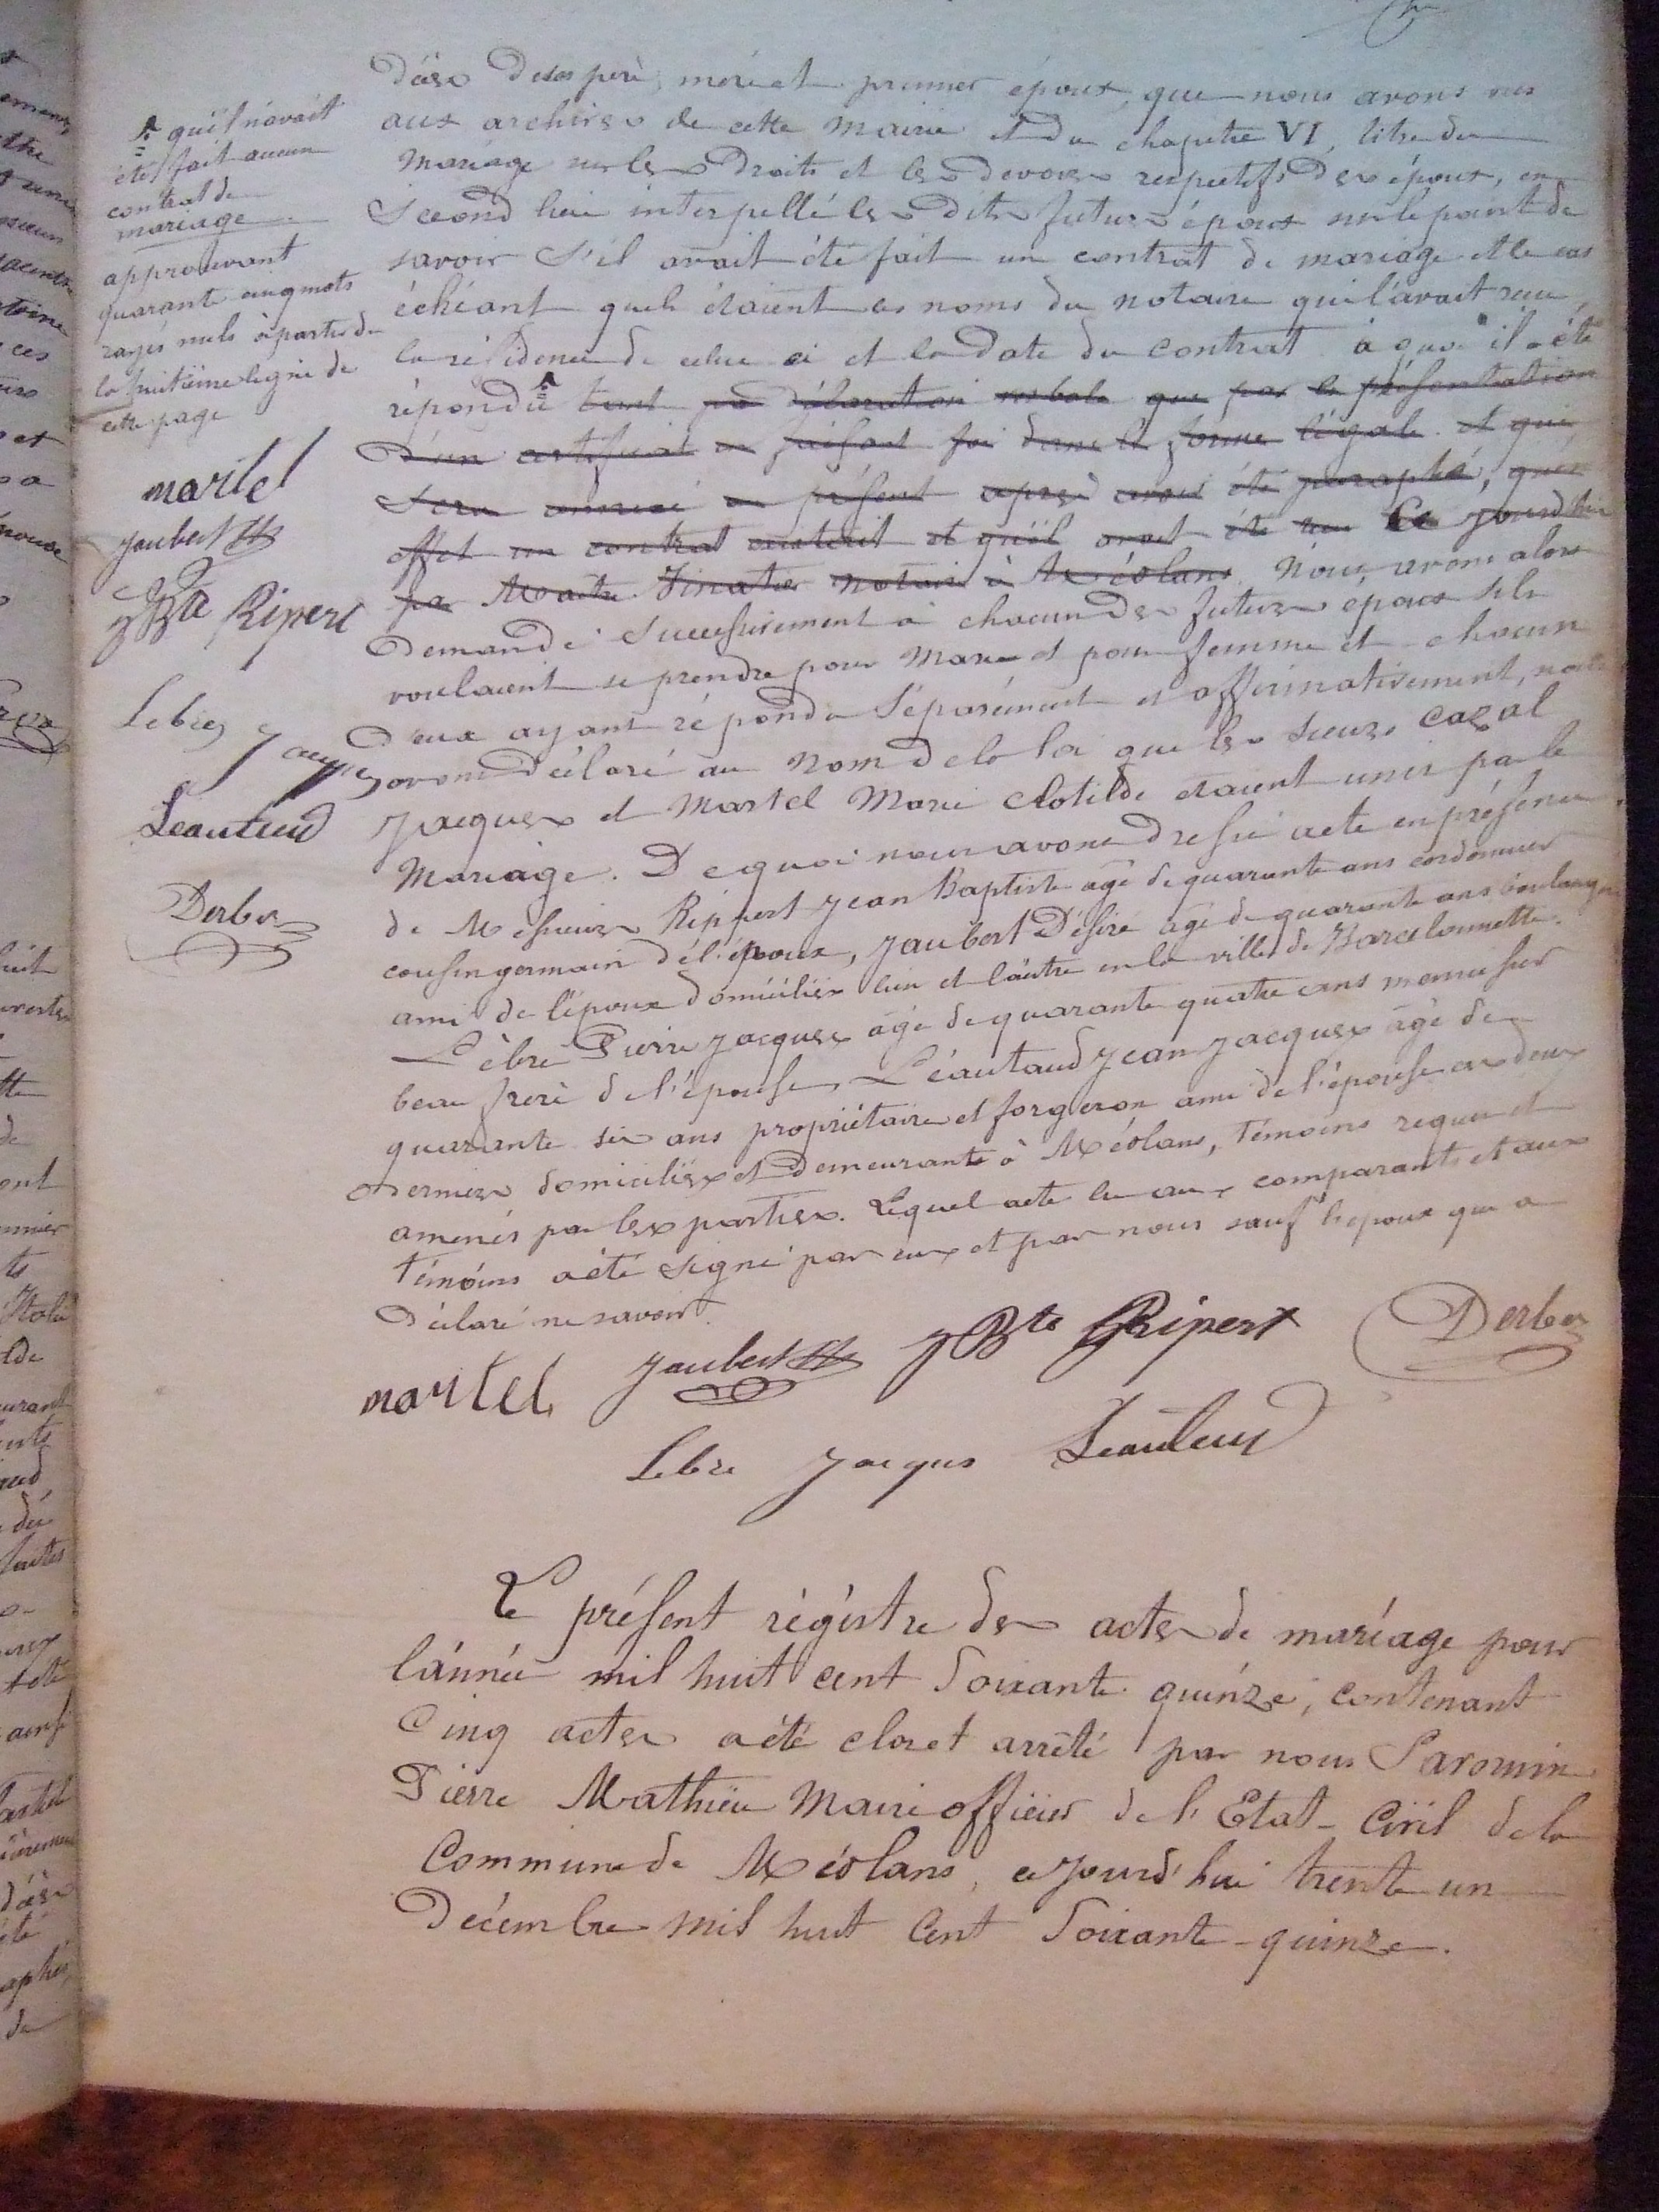 décès de ses père, mère et premier époux, que nous avons vus
aux archives de cette Mairie et du chapitre VI, titre du
Mariage sur les Droits et les devoirs respectifs des époux, en
Second lieu interpellé les dits futurs époux sur le point de
savoir s'il avait été fait un contrat de mariage et le cas
échéant quels étaient les noms du notaire qui l'avait reçu,
la résidence de celui ci et la date du contrat à quoi il a été
répondu tant par déclaration verbale que par la présentation
D'un certificat en faisant foi dans la forme légale et qui
Sera annexé au présent après avoir été paraphé, qu'en
effet un contrat existait et qu'il avait été reçu Ce jourd'hui
par Maitre Tinatier notaire à Méolans. Nous avons alors
Demandé Successivement à chacun des futurs epoux s'ils
voulaient se prendre pour Mari et pour femme et chacun
D'eux ayant répondu Séparément et affirmativement, nous
avons Déclaré au Nom de la loi que les sieurs Cazal
Jacques et Martel Marie Clotilde etaient unis par le
Mariage. De quoi nous avons dressé acte en présence
de Messieurs Rippert Jean Baptiste âgé de quarante ans cordonnier
cousin germain de l'époux, Jaubert Désiré âgé de quarante ans boulanger
ami de l'époux domiciliés l'un et l'autre en la ville de Barcelonnette.
Lèbre Pierre Jacques âgé de quarante quatre ans menuisier
beau frère de l'épouse, Léautaud Jean Jacques âgé de
quarante six ans propriétaire et forgeron ami de l'épouse ces deux
Derniers domiciliés et Demeurants à Méolans, témoins requis et
amenés par les parties. Lequel acte lu aux comparants et aux
témoins a été signé par eux et par nous sauf l'epoux qui a
Déclaré ne savoir.
martel Jaubert JBte Ripert Derbez
Lebre Jacques Léautaud
qu'il n'avait
été fait aucun
contrat de
mariage
approuvant
quarante cinq mots
rayés nuls à partir de
la huitième ligne de
cette page
martel
Jaubert
JBte Ripert
Lebre Jacques
Léautaud
Derbez
Le présent régistre des actes de mariage pour
l'année mil huit cent Soixante quinze, contenant
Cinq actes a été clos et arrêté par nous
Pierre Mathieu Maire officier de l'Etat-Civil de la
Commune de Méolans, ce jourd'hui trente un
Décembre mil huit Cent Soixante-quinze.